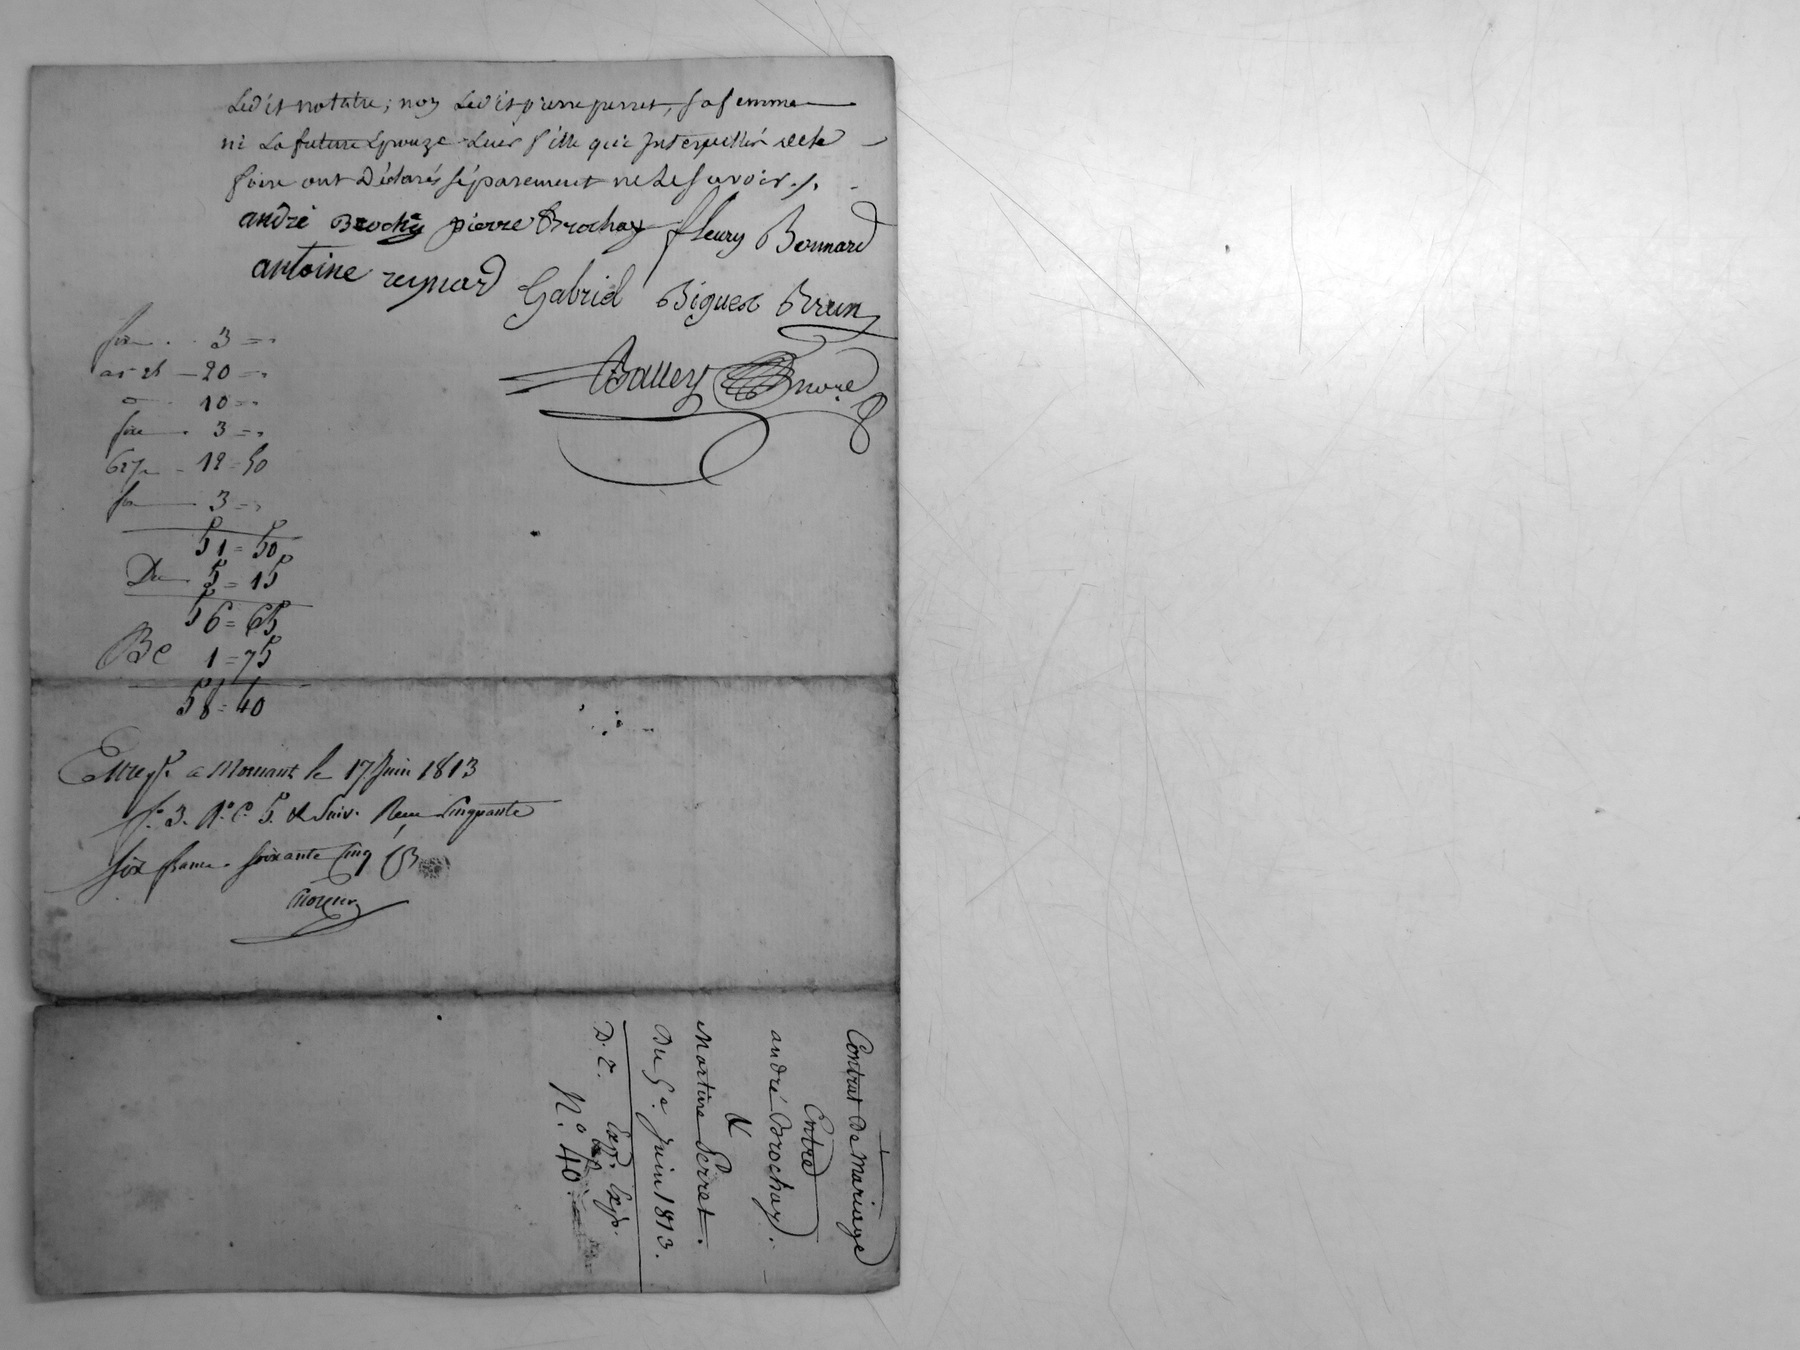 Ledit notaire; non Ledit pierre perret, sa femme
ni La future Epouze Leur fille qui interpellés de le
faire ont Déclarés séparement ne Le savoir./.
andré Brochay pierre Brochay fleury Bonnard
antoine reynard Gabriel Biguet Brun
Balley nore
3 =
20 =
10 =
3 =
12 = 50
3 =
51 = 50
Du 5 = 15
56 = 65
Be 1 = 75
58 = 40
Enregt. a Mornant le 17 Juin 1813
fo. 3. Ro. Co. 5. & Suiv. Recu Cinquante
six francs soixante Cinq
Contrat De mariage
Entre
andré Brochay.
&
Martine Perret.
Du 5e. juin 1813.
D. E. Exp. Exp.
N°. 40.